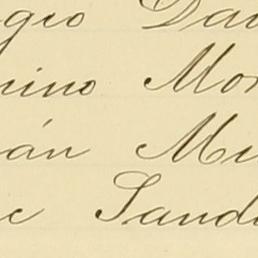 gio Dav
nino Mor
án Mi
c Sando